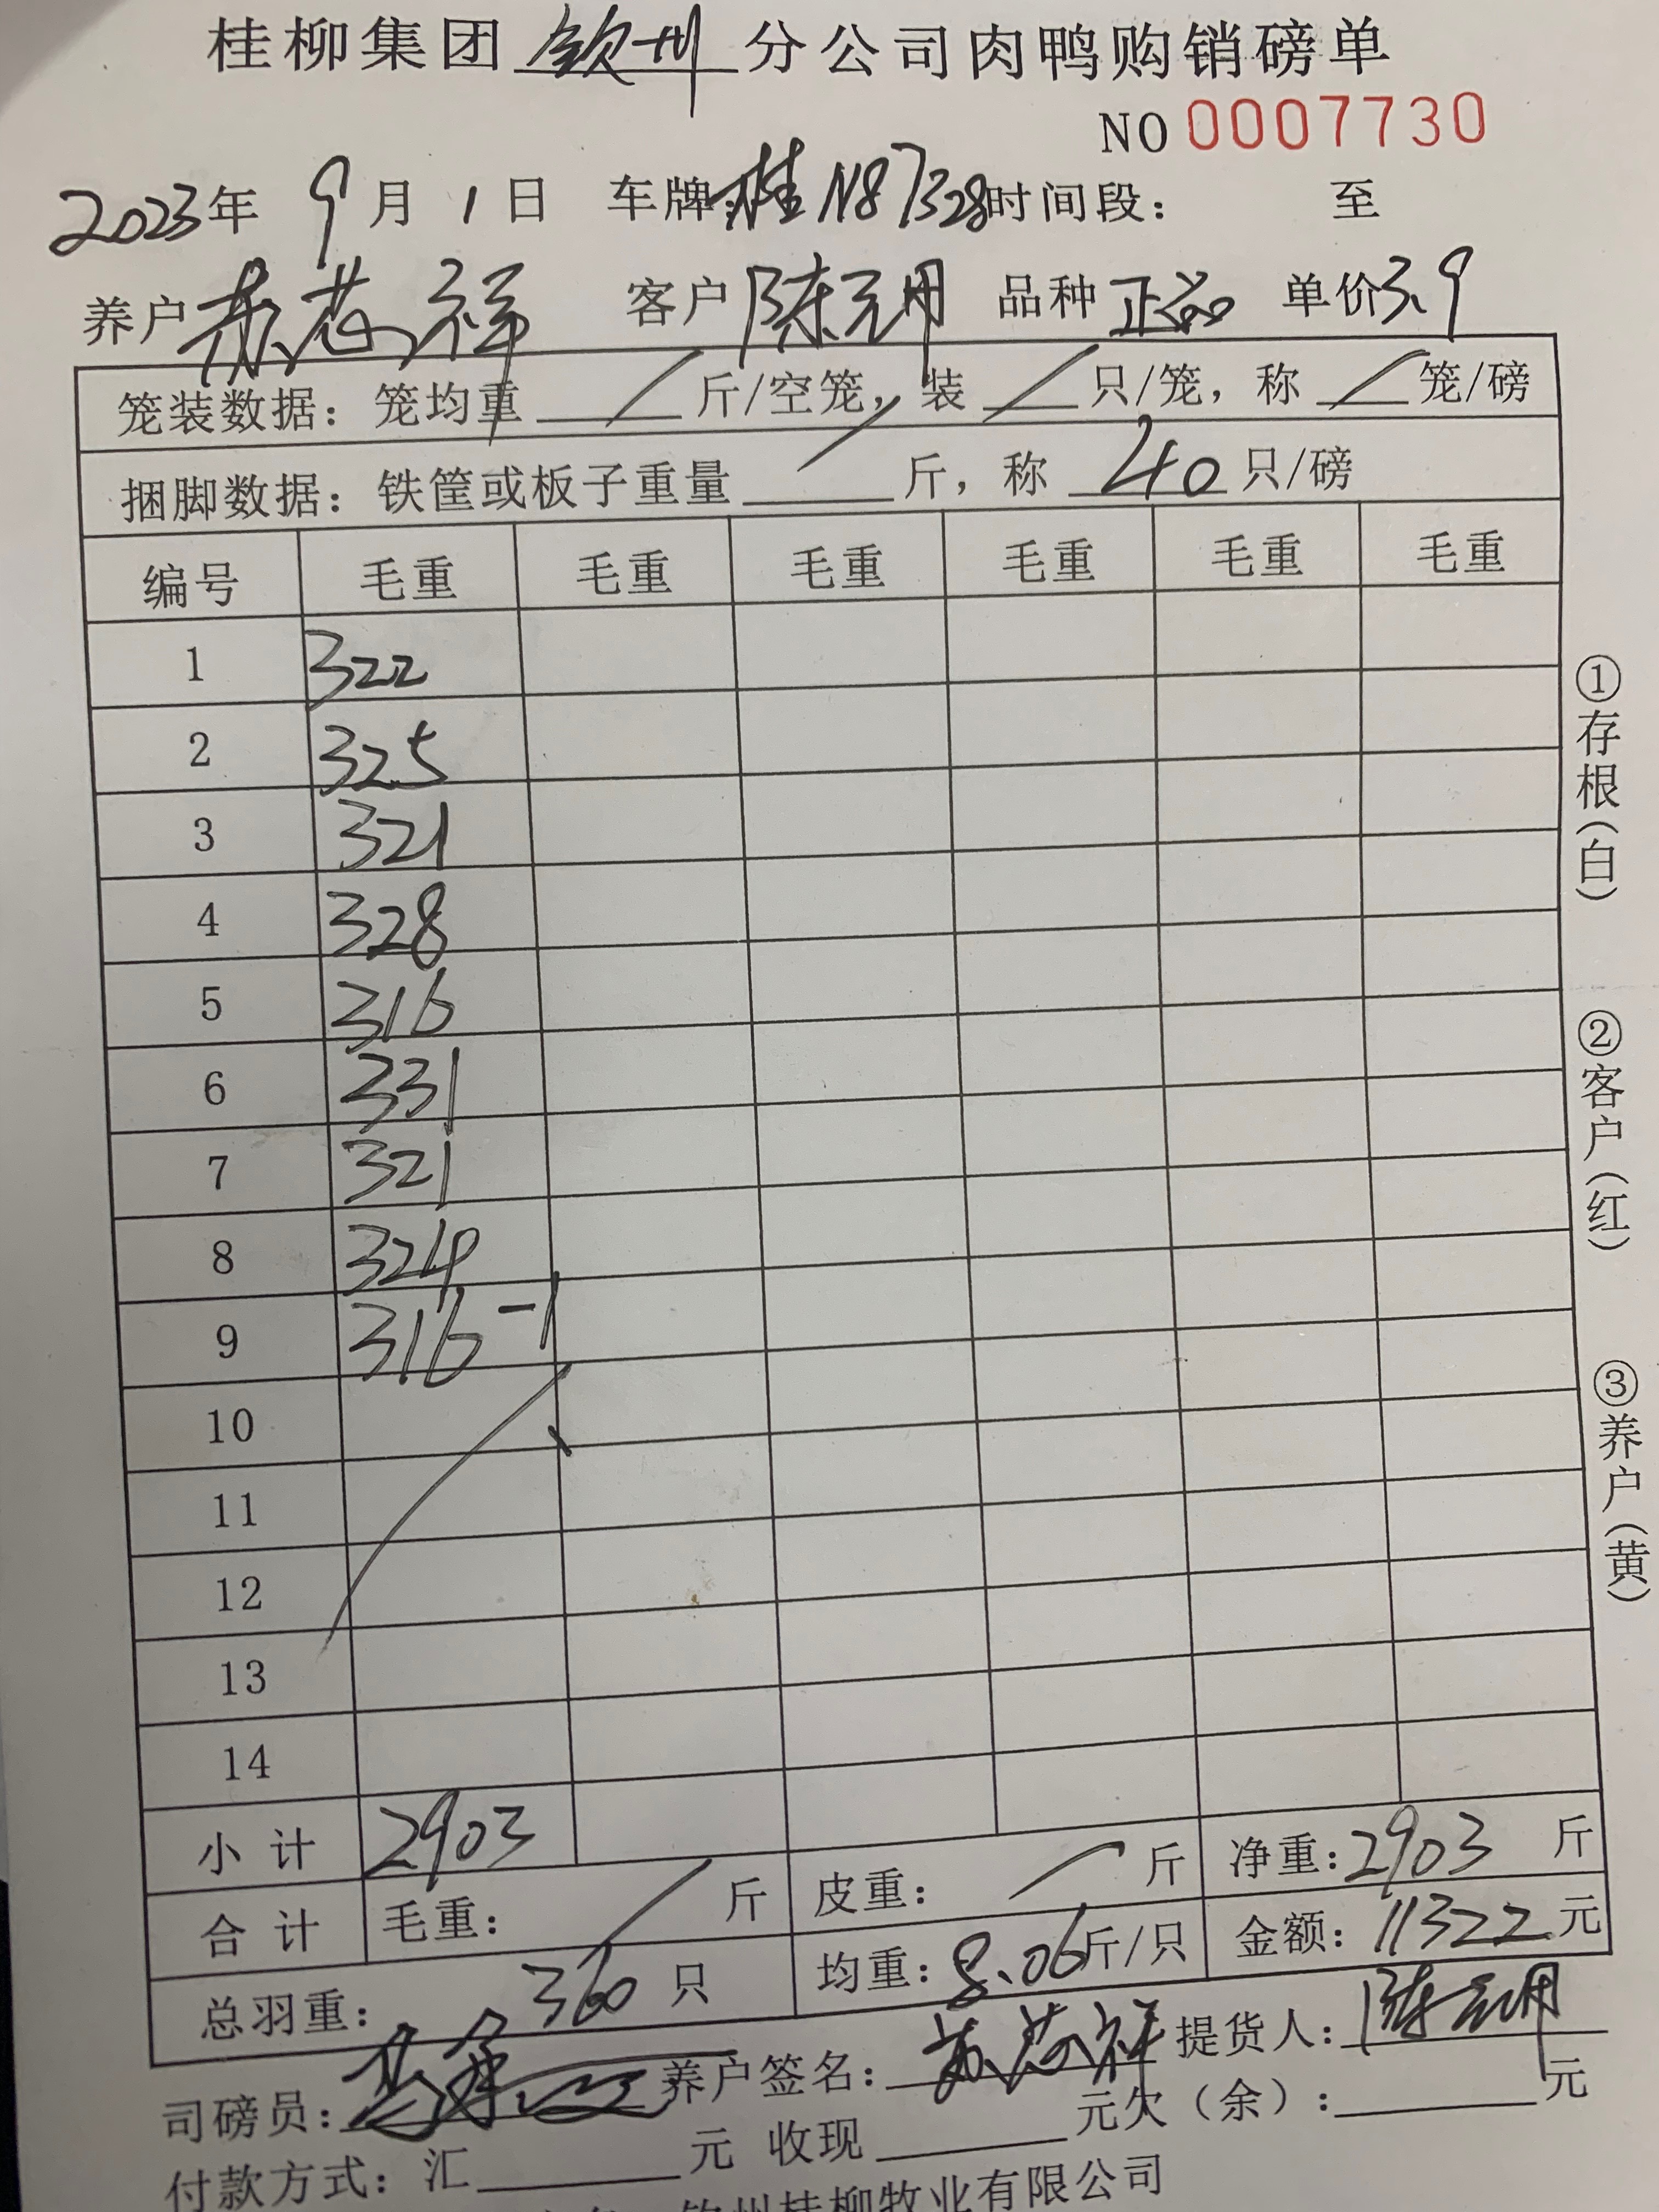 桂柳集团钦州分公司肉鸭购销磅单
NO 0007730
2023年 9月 1日 车牌:桂N87328时间段: 至
养户 芯祥 客户 陈元明 品种 正品 单价3.9
笼装数据: 笼均重 / 斤/空笼, 装 / 只/笼, 称 / 笼/磅
捆脚数据: 铁筐或板子重量 / 斤, 称 40 只/磅
编号 毛重 毛重 毛重 毛重 毛重 毛重
1 322
2 325
3 321
4 328
5 316
6 331
7 321
8 324
9 316 -1
10
11
12
13
14
小计 2903
合计 毛重: / 斤 皮重: / 斤 净重: 2903 斤
总羽重: 360 只 均重: 8.06斤/只 金额: 11322元
司磅员: 养户签名: 芯祥 提货人: 陈元明
付款方式: 汇 元 收现 元欠(余): 元
钦州桂柳牧业有限公司
①存根(白)
②客户(红)
③养户(黄)